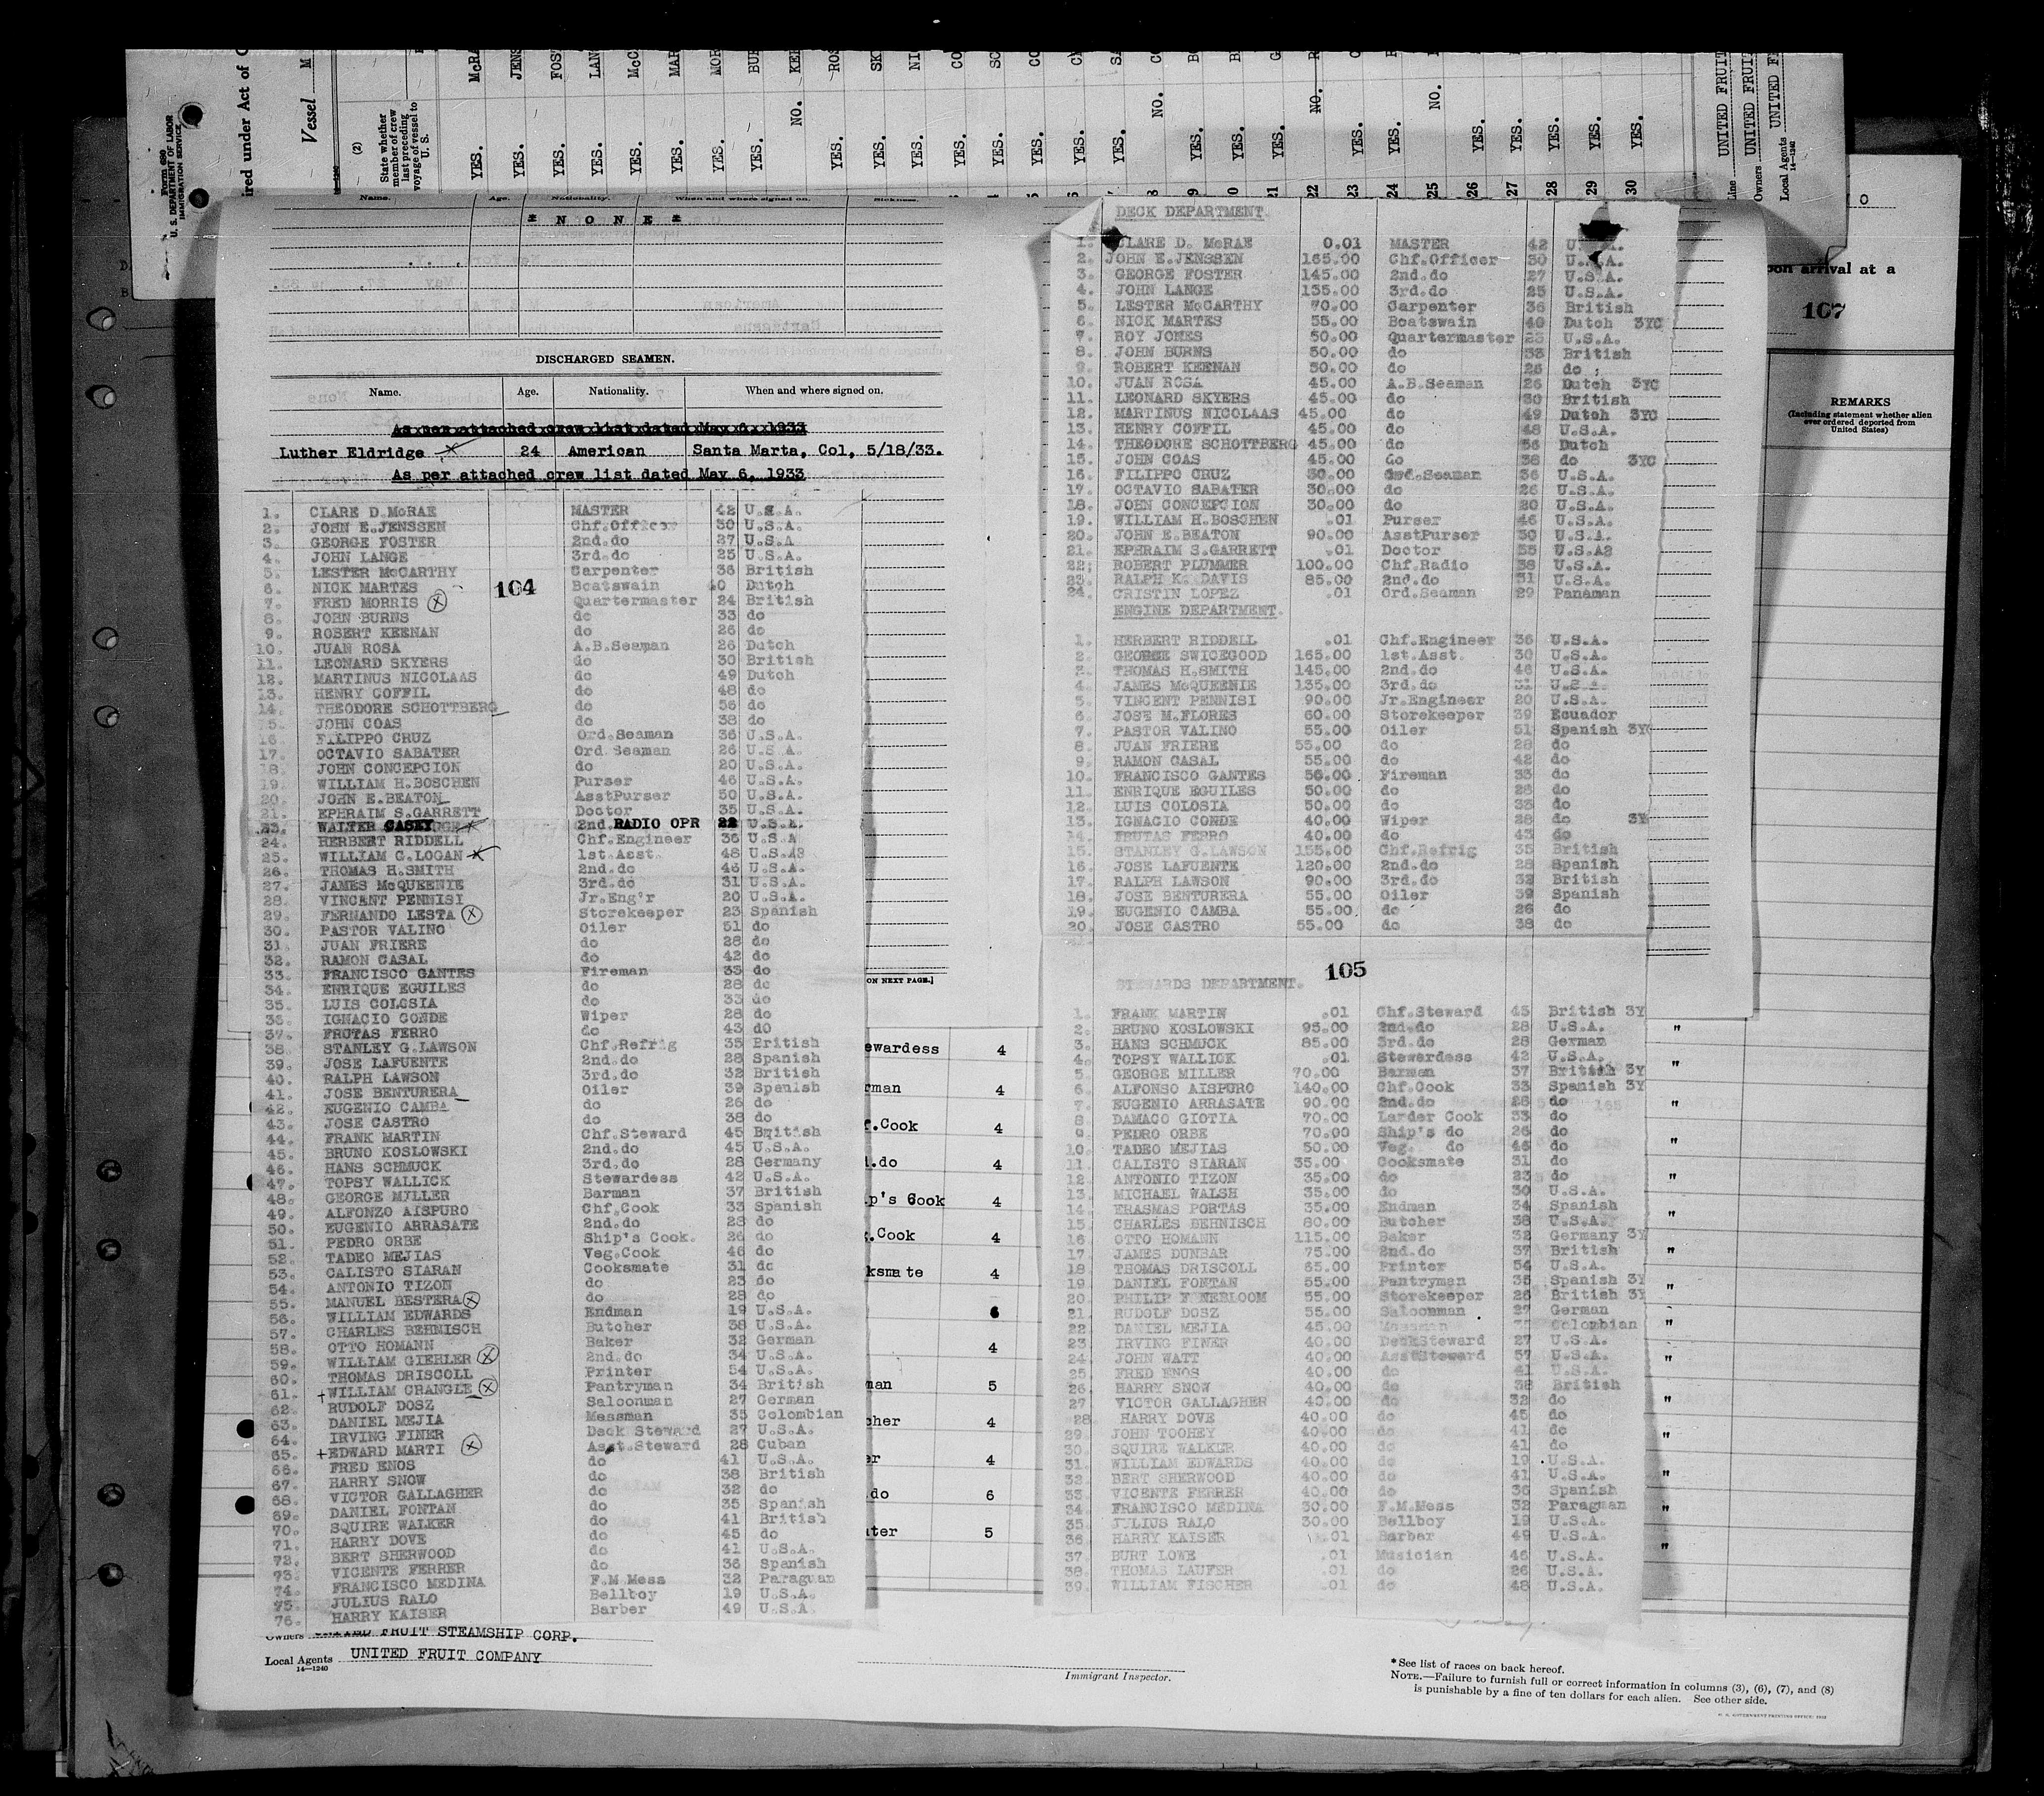 Form 689
U. S. DEPARTMENT OF LABOR
IMMIGRATION SERVICE
Vessel
(2)
State whether
member of crew
last preceding
voyage of vessel to
U. S.
YES.
YES.
YES.
YES.
YES.
YES.
YES.
YES.
NO.
YES.
YES.
YES.
YES.
YES.
YES.
YES.
YES.
NO.
YES.
YES.
YES.
NO.
YES.
YES.
NO.
YES.
YES.
YES.
YES.
YES.
22 23 24 25 26 27 28 29 30
UNITED FRUIT
UNITED FRUIT
Owners
Local Agents UNITED
Name. Age. Nationality. When and where signed on. Sickness.
* N O N E *
DISCHARGED SEAMEN.
Name. Age. Nationality. When and where signed on.
As per attached crew list dated May 6, 1933
Luther Eldridge 24 American Santa Marta, Col, 5/18/33.
As per attached crew list dated May 6, 1933
104
1. CLARE D.McRAE MASTER 42 U.S.A.
2. JOHN E.JENSSEN Chf.Officer 30 U.S.A.
3. GEORGE FOSTER 2nd.do 27 U.S.A
4. JOHN LANGE 3rd.do 25 U.S.A.
5. LESTER McCARTHY Carpenter 36 British
6. NICK MARTES Boatswain 40 Dutch
7. FRED MORRIS X Quartermaster 24 British
8. JOHN BURNS do 33 do
9. ROBERT KEENAN do 26 do
10. JUAN ROSA A.B.Seaman 26 Dutch
11. LEONARD SKYERS do 30 British
12. MARTINUS NICOLAAS do 49 Dutch
13. HENRY COFFIL do 48 do
14. THEODORE SCHOTTBERG do 56 do
15. JOHN COAS do 38 do
16. FILIPPO CRUZ Ord.Seaman 36 U.S.A.
17. OCTAVIO SABATER Ord.Seaman 26 U.S.A.
18. JOHN CONCEPCION do 20 U.S.A.
19. WILLIAM H.BOSCHEN Purser 46 U.S.A.
20. JOHN E.BEATON AsstPurser 50 U.S.A.
21. EPHRAIM S.GARRETT Doctor 35 U.S.A.
23. WALTER CASEY 2nd. RADIO OPR 22 U.S.A.
24. HERBERT RIDDELL Chf.Engineer 36 U.S.A
25. WILLIAM G.LOGAN X 1st.Asst. 48 U.S.A
26. THOMAS H.SMITH 2nd.do 46 U.S.A.
27. JAMES McQUEENIE 3rd.do 31 U.S.A.
28. VINCENT PENNISI Jr.Eng'r 20 U.S.A.
29. FERNANDO LESTA X Storekeeper 23 Spanish
30. PASTOR VALINO Oiler 51 do
31. JUAN FRIERE do 28 do
32. RAMON CASAL do 42 do
33. FRANCISCO GANTES Fireman 33 do
34. ENRIQUE EGUILES do 28 do
35. LUIS COLOSIA do 33 do
36. IGNACIO CONDE Wiper 28 do
37. FRUTAS FERRO do 43 do
38. STANLEY G.LAWSON Chf.Refrig 35 British
39. JOSE LAFUENTE 2nd.do 28 Spanish
40. RALPH LAWSON 3rd.do 32 British
41. JOSE BENTURERA Oiler 39 Spanish
42. EUGENIO CAMBA do 26 do
43. JOSE CASTRO do 38 do
44. FRANK MARTIN Chf.Steward 45 British
45. BRUNO KOSLOWSKI 2nd.do 45 U.S.A.
46. HANS SCHMUCK 3rd.do 28 Germany
47. TOPSY WALLICK Stewardess 42 U.S.A.
48. GEORGE MILLER Barman 37 British
49. ALFONZO AISPURO Chf.Cook 33 Spanish
50. EUGENIO ARRASATE 2nd.do 28 do
51. PEDRO ORBE Ship's Cook. 26 do
52. TADEO MEJIAS Veg.Cook 46 do
53. CALISTO SIARAN Cooksmate 31 do
54. ANTONIO TIZON do 23 do
55. MANUEL BESTERA X do 28 do
56. WILLIAM EDWARDS Endman 19 U.S.A.
57. CHARLES BEHNISCH Butcher 38 U.S.A.
58. OTTO HOMANN Baker 32 German
59. WILLIAM GIEHLER X 2nd.do 34 U.S.A.
60. THOMAS DRISCOLL Printer 54 U.S.A.
61. +WILLIAM CRANGLE X Pantryman 34 British
62. RUDOLF DOSZ Saloonman 27 German
63. DANIEL MEJIA Messman 35 Colombian
64. IRVING FINER Deck Steward 27 U.S.A.
65. +EDWARD MARTI X Asst.Steward 28 Cuban
66. FRED ENOS do 41 U.S.A.
67. HARRY SNOW do 38 British
68. VICTOR GALLAGHER do 32 do
69. DANIEL FONTAN do 35 Spanish
70. SQUIRE WALKER do 41 British
71. HARRY DOVE do 45 do
72. BERT SHERWOOD do 41 U.S.A.
73. VICENTE FERRER do 36 Spanish
74. FRANCISCO MEDINA F.M.Mess 32 Paraguan
75. JULIUS RALO Bellboy 19 U.S.A.
76. HARRY KAISER Barber 49 U.S.A.
Owners FRUIT STEAMSHIP CORP.
Local Agents UNITED FRUIT COMPANY
14—1240
ON NEXT PAGE.]
ewardess 4
rman 4
f.Cook 4
.do 4
p's Cook 4
.Cook 4
ksmate 4
6
4
man 5
cher 4
er 4
.do 6
ter 5
DECK DEPARTMENT.
1. CLARE D. McRAE 0.01 MASTER 42 U.S.A.
2. JOHN E.JENSSEN 165.00 Chf.Officer 30 U.S.A.
3. GEORGE FOSTER 145.00 2nd.do 27 U.S.A.
4. JOHN LANGE 135.00 3rd.do 25 U.S.A.
5. LESTER McCARTHY 70.00 Carpenter 36 British
6. NICK MARTES 55.00 Boatswain 40 Dutch 3YC
7. ROY JONES 50.00 Quartermaster 23 U.S.A.
8. JOHN BURNS 50.00 do 33 British
9. ROBERT KEENAN 50.00 do 26 do
10. JUAN ROSA 45.00 A.B.Seaman 26 Dutch 3YC
11. LEONARD SKYERS 45.00 do 30 British
12. MARTINUS NICOLAAS 45.00 do 49 Dutch 3YC
13. HENRY COFFIL 45.00 do 48 U.S.A.
14. THEODORE SCHOTTBERG 45.00 do 56 Dutch
15. JOHN COAS 45.00 do 38 do 3YC
16. FILIPPO CRUZ 30.00 Ord.Seaman 36 U.S.A.
17. OCTAVIO SABATER 30.00 do 26 U.S.A.
18. JOHN CONCEPCION 30.00 do 20 U.S.A.
19. WILLIAM H.BOSCHEN .01 Purser 46 U.S.A.
20. JOHN E.BEATON 90.00 AsstPurser 50 U.S.A.
21. EPHRAIM S.GARRETT .01 Doctor 35 U.S.A
22. ROBERT PLUMMER 100.00 Chf.Radio 38 U.S.A.
23. RALPH K. DAVIS 85.00 2nd.do 31 U.S.A.
24. CRISTIN LOPEZ .01 Ord.Seaman 29 Panaman
ENGINE DEPARTMENT.
1. HERBERT RIDDELL .01 Chf.Engineer 36 U.S.A.
2. GEORGE SWICEGOOD 165.00 1st.Asst. 30 U.S.A.
3. THOMAS H.SMITH 145.00 2nd.do 46 U.S.A.
4. JAMES McQUEENIE 135.00 3rd.do 31 U.S.A.
5. VINCENT PENNISI 90.00 Jr.Engineer 20 U.S.A.
6. JOSE M.FLORES 60.00 Storekeeper 39 Ecuador
7. PASTOR VALINO 55.00 Oiler 51 Spanish 3YC
8. JUAN FRIERE 55.00 do 28 do
9. RAMON CASAL 55.00 do 42 do
10. FRANCISCO GANTES 50.00 Fireman 33 do
11. ENRIQUE EGUILES 50.00 do 28 do
12. LUIS COLOSIA 50.00 do 33 do
13. IGNACIO CONDE 40.00 Wiper 28 do 3Y
14. FRUTAS FERRO 40.00 do 43 do
15. STANLEY G.LAWSON 155.00 Chf.Refrig 35 British
16. JOSE LAFUENTE 120.00 2nd.do 28 Spanish
17. RALPH LAWSON 90.00 3rd.do 32 British
18. JOSE BENTURERA 55.00 Oiler 39 Spanish
19. EUGENIO CAMBA 55.00 do 26 do
20. JOSE CASTRO 55.00 do 38 do
105
STEWARDS DEPARTMENT.
1. FRANK MARTIN .01 Chf.Steward 45 British 3Y
2. BRUNO KOSLOWSKI 95.00 2nd.do 28 U.S.A.
3. HANS SCHMUCK 85.00 3rd.do 28 German
4. TOPSY WALLICK .01 Stewardess 42 U.S.A.
5. GEORGE MILLER 70.00 Barman 37 British 3Y
6. ALFONSO AISPURO 140.00 Chf.Cook 33 Spanish 3Y
7. EUGENIO ARRASATE 90.00 2nd.do 28 do
8. DAMACO GIOTIA 70.00 Larder Cook 33 do
9. PEDRO ORBE 70.00 Ship's do 26 do
10. TADEO MEJIAS 50.00 Veg. do 46 do
11. CALISTO SIARAN 35.00 Cooksmate 31 do
12. ANTONIO TIZON 35.00 do 23 do
13. MICHAEL WALSH 35.00 do 30 U.S.A.
14. ERASMAS PORTAS 35.00 Endman 34 Spanish
15. CHARLES BEHNISCH 80.00 Butcher 38 U.S.A.
16. OTTO HOMANN 115.00 Baker 32 Germany 3Y
17. JAMES DUNBAR 75.00 2nd.do 37 British
18. THOMAS DRISCOLL 65.00 Printer 54 U.S.A.
19. DANIEL FONTAN 55.00 Pantryman 35 Spanish 3Y
20. PHILIP 55.00 Storekeeper 26 British 3Y
21. RUDOLF DOSZ 55.00 Saloonman 27 German
22. DANIEL MEJIA 45.00 Messman 35 Colombian
23. IRVING FINER 40.00 DeckSteward 27 U.S.A.
24. JOHN WATT 40.00 AsstSteward 57 U.S.A.
25. FRED ENOS 40.00 do 41 U.S.A.
26. HARRY SNOW 40.00 do 38 British
27. VICTOR GALLAGHER 40.00 do 32 do
28. HARRY DOVE 40.00 do 45 do
29. JOHN TOOHEY 40.00 do 41 do
30. SQUIRE WALKER 40.00 do 41 do
31. WILLIAM EDWARDS 40.00 do 19 U.S.A.
32. BERT SHERWOOD 40.00 do 41 U.S.A.
33. VICENTE FERRER 40.00 do 36 Spanish
34. FRANCISCO MEDINA 30.00 F.M.Mess 32 Paraguan
35. JULIUS RALO 30.00 Bellboy 19 U.S.A.
36. HARRY KAISER .01 Barber 49 U.S.A.
37. BURT LOWE .01 Musician 46 U.S.A.
38. THOMAS LAUFER .01 do 26 U.S.A.
39. WILLIAM FISCHER .01 do 48 U.S.A.
Immigrant Inspector.
* See list of races on back hereof.
NOTE.—Failure to furnish full or correct information in columns (3), (6), (7), and (8)
is punishable by a fine of ten dollars for each alien. See other side.
upon arrival at a
107
REMARKS
(Including statement whether alien
ever ordered deported from
United States)